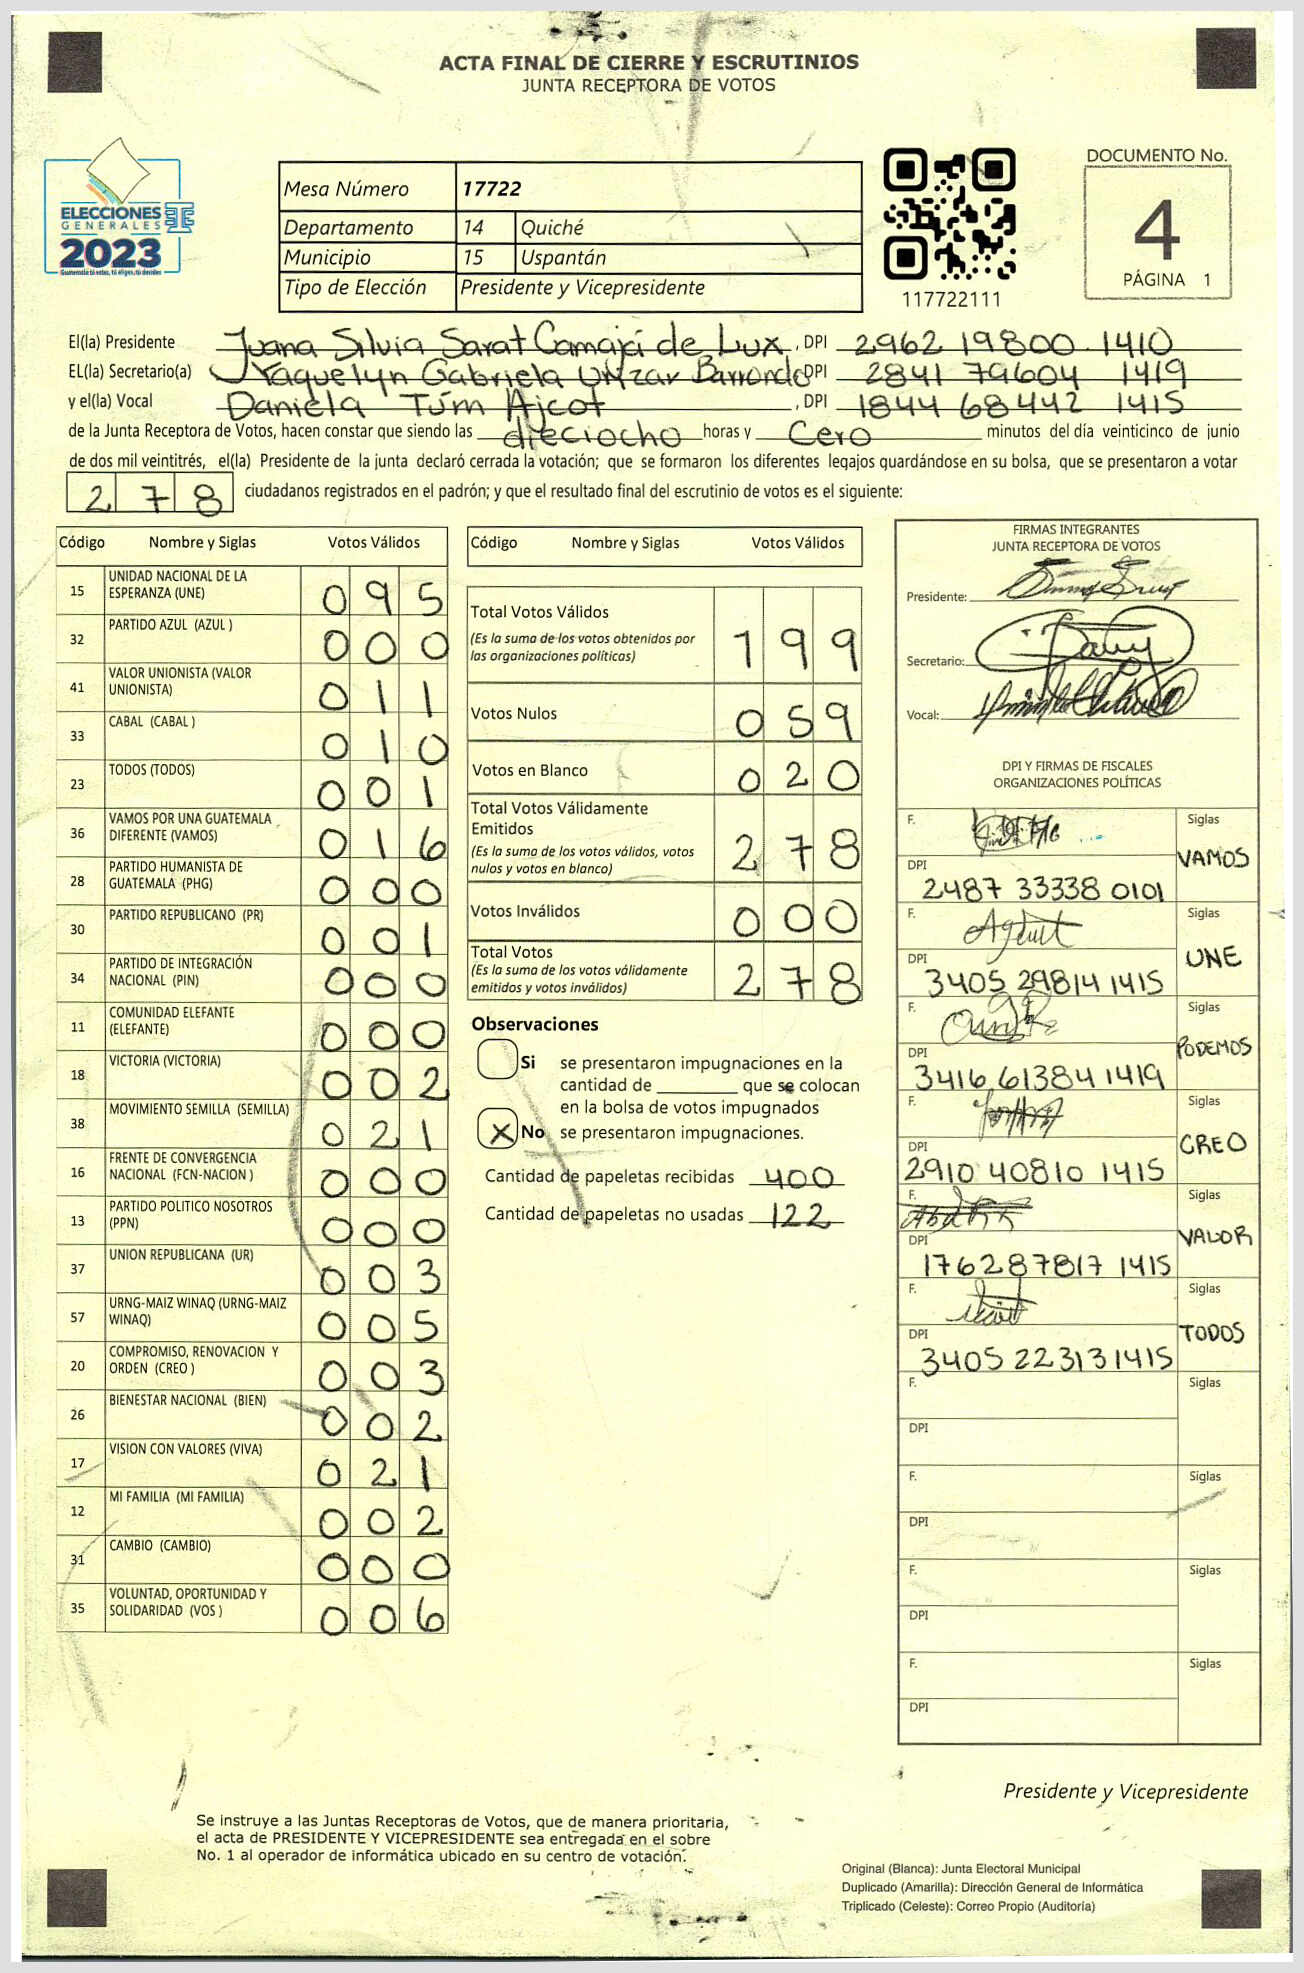 ACTA FINAL DE CIERRE Y ESCRUTINIOS
JUNTA RECEPTORA DE VOTOS
ELECCIONES
GENERALES
2023
Guatemala tú votas, tú eliges, tú decides
Mesa Número 17722
Departamento 14 Quiché
Municipio 15 Uspantán
Tipo de Elección Presidente y Vicepresidente
117722111
DOCUMENTO No.
4
PÁGINA 1
El(la) Presidente Juana Silvia Sarat Camajá de Lux, DPI 2962 19800 1410
EL(la) Secretario(a) Yaquelyn Gabriela Urizar Barrondo DPI 2841 79604 1419
y el(la) Vocal Daniela Túm Ajcot, DPI 1844 68442 1415
de la Junta Receptora de Votos, hacen constar que siendo las dieciocho horas y Cero minutos del día veinticinco de junio
de dos mil veintitrés, el(la) Presidente de la junta declaró cerrada la votación; que se formaron los diferentes legajos guardándose en su bolsa, que se presentaron a votar
278 ciudadanos registrados en el padrón; y que el resultado final del escrutinio de votos es el siguiente:
Código Nombre y Siglas Votos Válidos
15 UNIDAD NACIONAL DE LA ESPERANZA (UNE) 095
32 PARTIDO AZUL (AZUL ) 000
41 VALOR UNIONISTA (VALOR UNIONISTA) 011
33 CABAL (CABAL ) 010
23 TODOS (TODOS) 001
36 VAMOS POR UNA GUATEMALA DIFERENTE (VAMOS) 016
28 PARTIDO HUMANISTA DE GUATEMALA (PHG) 000
30 PARTIDO REPUBLICANO (PR) 001
34 PARTIDO DE INTEGRACIÓN NACIONAL (PIN) 000
11 COMUNIDAD ELEFANTE (ELEFANTE) 000
18 VICTORIA (VICTORIA) 002
38 MOVIMIENTO SEMILLA (SEMILLA) 021
16 FRENTE DE CONVERGENCIA NACIONAL (FCN-NACION ) 000
13 PARTIDO POLITICO NOSOTROS (PPN) 000
37 UNION REPUBLICANA (UR) 003
57 URNG-MAIZ WINAQ (URNG-MAIZ WINAQ) 005
20 COMPROMISO, RENOVACION Y ORDEN (CREO ) 003
26 BIENESTAR NACIONAL (BIEN) 002
17 VISION CON VALORES (VIVA) 021
12 MI FAMILIA (MI FAMILIA) 002
31 CAMBIO (CAMBIO) 000
35 VOLUNTAD, OPORTUNIDAD Y SOLIDARIDAD (VOS ) 006
Código Nombre y Siglas Votos Válidos
Total Votos Válidos 199
(Es la suma de los votos obtenidos por
las organizaciones políticas)
Votos Nulos 059
Votos en Blanco 020
Total Votos Válidamente
Emitidos 278
(Es la suma de los votos válidos, votos
nulos y votos en blanco)
Votos Inválidos 000
Total Votos 278
(Es la suma de los votos válidamente
emitidos y votos inválidos)
Observaciones
Si se presentaron impugnaciones en la
cantidad de ________ que se colocan
en la bolsa de votos impugnados
X No se presentaron impugnaciones.
Cantidad de papeletas recibidas 400
Cantidad de papeletas no usadas 122
FIRMAS INTEGRANTES
JUNTA RECEPTORA DE VOTOS
Presidente:
Secretario:
Vocal:
DPI Y FIRMAS DE FISCALES
ORGANIZACIONES POLÍTICAS
F. Siglas
VAMOS
DPI
2487 33338 0101
F. Siglas
UNE
DPI
3405 29814 1415
F. Siglas
PODEMOS
DPI
3416 61384 1419
F. Siglas
CREO
DPI
2910 40810 1415
F. Siglas
VALOR
DPI
1762 87817 1415
F. Siglas
TODOS
DPI
3405 22313 1415
F. Siglas
DPI
F. Siglas
DPI
F. Siglas
DPI
F. Siglas
DPI
Presidente y Vicepresidente
Se instruye a las Juntas Receptoras de Votos, que de manera prioritaria,
el acta de PRESIDENTE Y VICEPRESIDENTE sea entregada en el sobre
No. 1 al operador de informática ubicado en su centro de votación.
Original (Blanca): Junta Electoral Municipal
Duplicado (Amarilla): Dirección General de Informática
Triplicado (Celeste): Correo Propio (Auditoría)